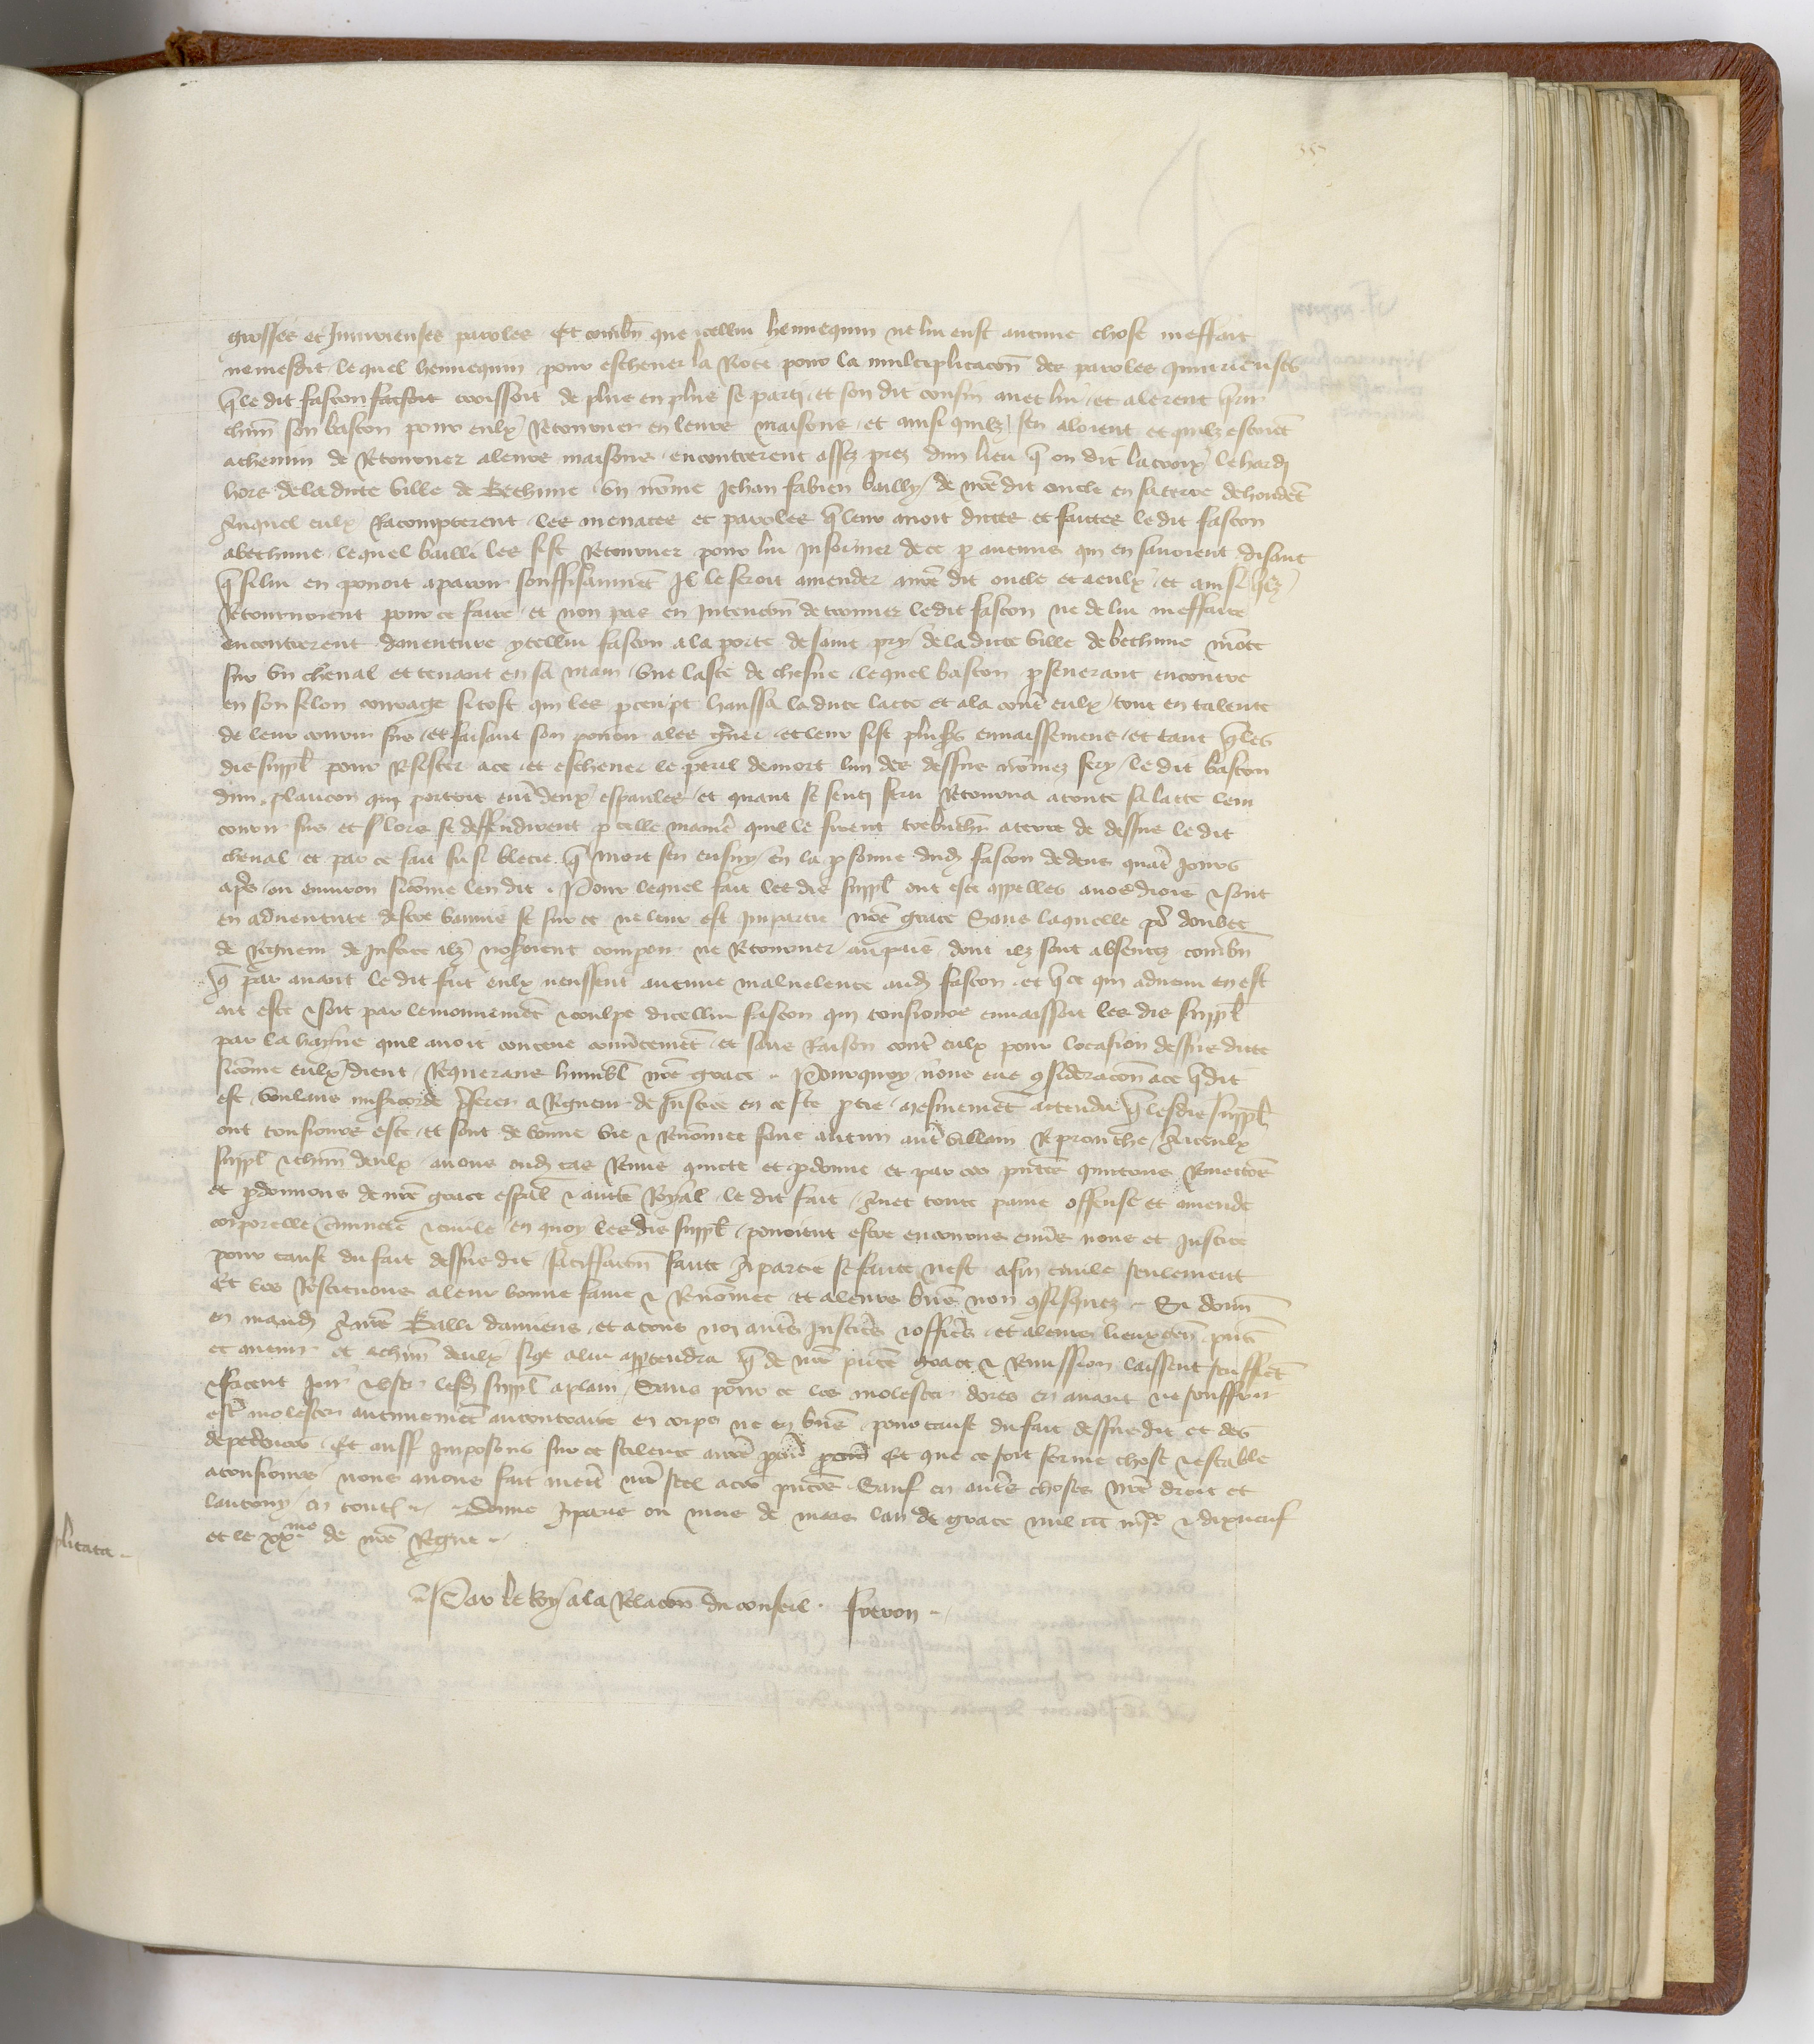 grosses et Iniurieuses paroles Et combn que icellui hennequin ne lui eust aucune chose meffait
ne mesdit lequel hennequin pour eschever la Rote pour la multiplicacon des paroles iniurieuses
q le dit fascon faisoit croissoit de plus en plus se parti et son dit cousin avec lui et alerent
chun son baston pour eulx Retourner en leurs maisons et ainsi quilz sen aloient et quilz estoiet
a chemin de Retourner a leurs maisons encontrerent assez prez dun lieu q on dit la croix le hardj
hors de la dicte ville de Bethune un nome Jehan fabien bailly de nre dit oncle en sa terre de
auquel eulx Racompterent les menaces et paroles q leur avoit dictes et faictes le dit fascon
a bethune lequel bailli les fist Retourner pour lui Informer de ce p aucuns qui en savoient disant
q se lui en povoit aparoir souffisamnet Il le feroit amender a nre dit oncle et a eulx et ainsi
Retournoient pour ce faire et non pas en Intencion de trouver ledit fascon ne de lui meffaire
encontrerent daventure ycellui fascon a la porte de saint pry de la dicte ville de bethune mote
sur un cheval et tenant en sa main une laste de chesne lequel baston pseverant encontre
en son felon courage si tost qui les pceupt haussa la dicte latte et ala contre eulx tout en talente
de leur courir sus et faisant son povoir a les grever et leur fist plusrs envaissemens et tant q les
dis suppl pour Resister a ce et eschever le peril de mort lun des dessus nomez fery le dit baston
dun plancon qui portoit entre deux espaules et quant se senti feru Retourna a toute sa latte leur
courir sus et slors se deffendirent p telle maniere quil le firent trebuchier a terre de dessus le dit
cheval et par ce fait fu si blecie q mort sen ensuy en la psonne dudj fascon dedens quatre jours
apres ou environ sicome len dit Pour lequel fait les dis suppl ont este appelles a noz drois et sont
en adventure destre bannis se sur ce ne leur est Impartie nre grace Sans laquelle pour doubte
de Rigueur de Justice ilz noseroient comparoir ne Retourner au pais dont ilz sont absentez combn
q par avant le dit fait eulx neussent aucune malvelence audj fascon et q ce qui advenu en est
ait este et soit par le mouvemet et coulpe dicellui fascon qui tousiours envaissoit les dis suppl
par la hayne quil avoit conceue comencemet et sans Raison contre eulx pour locasion dessus dicte
sicome eulx dient Requerans humbl nre grace Pourquoy nous eue consideracon a ce q dit
est voulans misericorde preferer a Rigueur de Justice en ceste ptie mesmemet attendu q lesdis suppl
ont tousiours este et sont de bonne vie et Renomee sans aucun autre villain Reprouche a iceulx
suppl et chun deulx avons oudj cas Remis quicte et pdonne et par ces pntes quictons Remectons
et pdonnons de nre grace espal et auctte Royal le dit fait avec toute paine offense et amende
corporelle criminele et civile en quoy les dis suppl povoient estre encourus envers nous et Justice
pour cause du fait dessus dit satisfacion faicte a partie se faicte nest a fin civile seulement
Et les Restituons a leur bonne fame et Renomee et a leurs biens non confisquez Si donn
en mandj a nre Bailli damiens et a tous noz autres Justiciers et officrs et a leurs lieuxten pns
et avenir et a chun deulx sicome a lui appartendra q de nre pnte grace et Remission laissent seuffret
et facent joir et user lesdj suppl a plain Sans pour ce les molester dores en avant ne souffrir
estre molestez aucunemet au contraire en corps ne en biens pour cause du fait dessus dit et des
dependences Et aussi Imposons sur ce scilence a nre procur Et que ce soit ferme chose et estable
a tousiours nous avons fait mectre nre scel a ces pntes Sauf en autres choses nre droit et
lautruy en toutes Donne a paris ou mois de mars lan de grace mil ccc iiijxx et dixneuf
et le xxme de nre Regne
plicata
Par le Roy a la Relacon du conseil freron